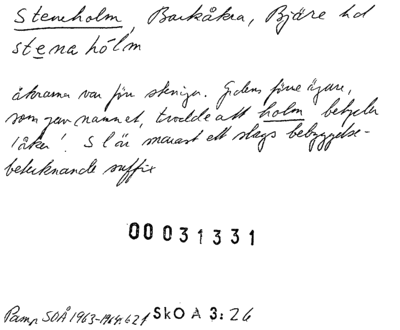 Steneholm, Barkåkra, Bjäre hd
stena hólm
åkrarna var förr steniga. Gårdens förre ägare,
som gav namnet, trodde att holm betyder
'åker'. S l är snarast ett slags bebyggelse-
betecknande suffix
00031331
Pamp SOÅ 1963-1964 s. 62 f SkO A 3: 26